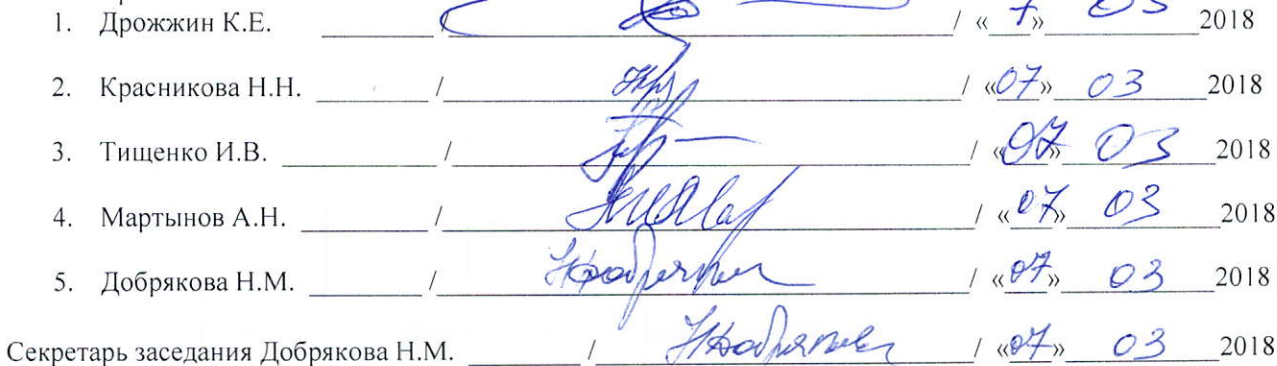 1. Дрожжин К.Е. ________ / ________ / «7» 03 2018
2. Красникова Н.Н. ________ / ________ / «07» 03 2018
3. Тищенко И.В. ________ / ________ / «07» 03 2018
4. Мартынов А.Н. ________ / ________ / «07» 03 2018
5. Добрякова Н.М. ________ / ________ / «07» 03 2018
Секретарь заседания Добрякова Н.М. ________ / ________ / «07» 03 2018